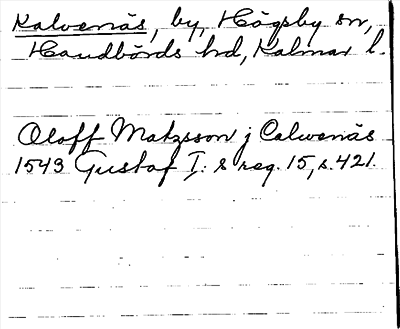 Kalvenäs, by, Högsby sn,
Handbörds hd, Kalmar l.
Oloff Matzsson j Calwenäs
1543 Gustaf I: s reg. 15, s. 421.